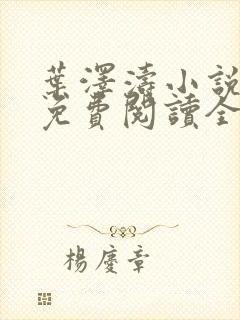 葉澤濤小說
免費閱讀全
楊慶章